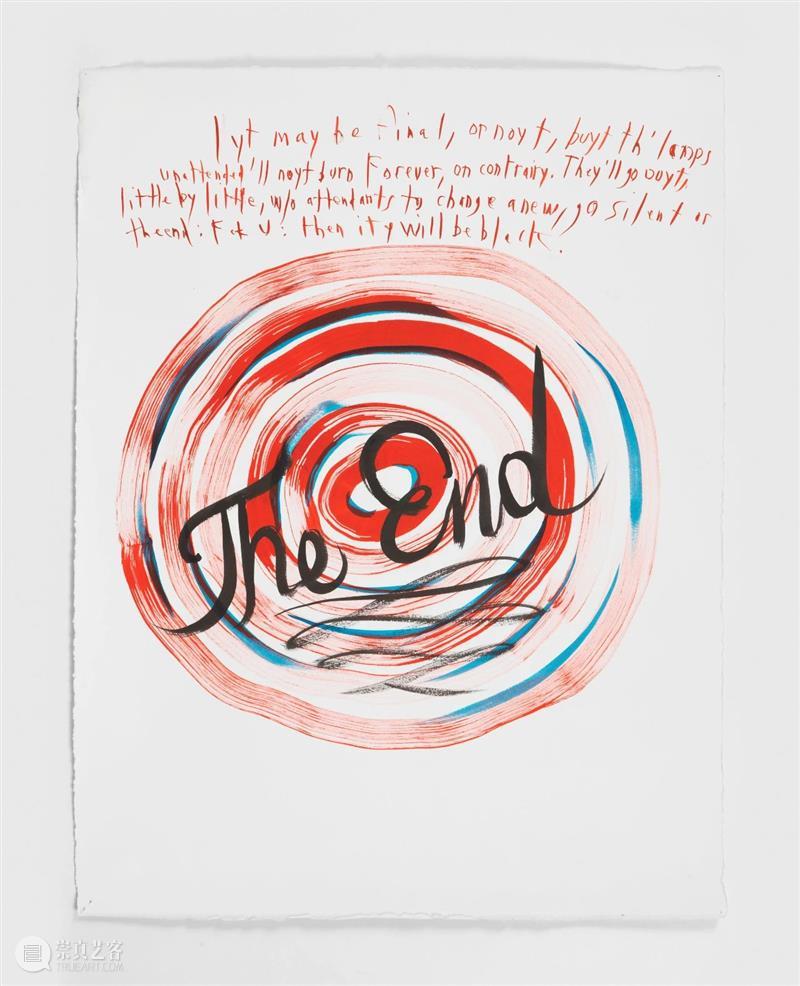 Iyt may be final, or noyt, buyt th' lamps
unattended'll noyt burn Forever, on contrary. They'll go ouyt,
little by little, w/o attendants to change anew, go silent or
the end: Fck U: then ity will be black.
The End
崇真艺客
TRUEART.COM